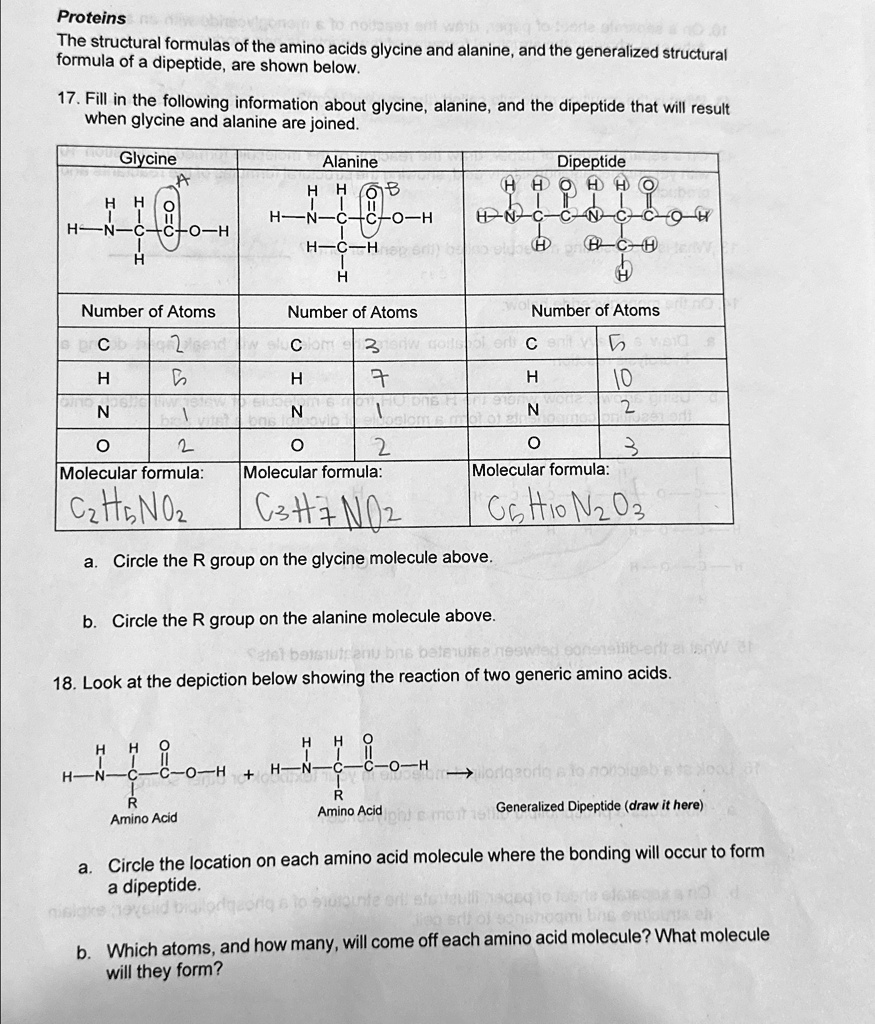 Proteins
The structural formulas of the amino acids glycine and alanine, and the generalized structural
formula of a dipeptide, are shown below.
17. Fill in the following information about glycine, alanine, and the dipeptide that will result
when glycine and alanine are joined.
Glycine Alanine Dipeptide
A B
H H O H H O H H O H H O
H—N—C—C—O—H H—N—C—C—O—H H—N—C—C—N—C—C—O—H
H H—C—H H H—C—H
H H
Number of Atoms Number of Atoms Number of Atoms
C 2 C 3 C 5
H 5 H 7 H 10
N 1 N 1 N 2
O 2 O 2 O 3
Molecular formula: Molecular formula: Molecular formula:
C2H5NO2 C3H7NO2 C5H10N2O3
a. Circle the R group on the glycine molecule above.
b. Circle the R group on the alanine molecule above.
18. Look at the depiction below showing the reaction of two generic amino acids.
H H O H H O
H—N—C—C—O—H + H—N—C—C—O—H →
R R
Amino Acid Amino Acid Generalized Dipeptide (draw it here)
a. Circle the location on each amino acid molecule where the bonding will occur to form
a dipeptide.
b. Which atoms, and how many, will come off each amino acid molecule? What molecule
will they form?